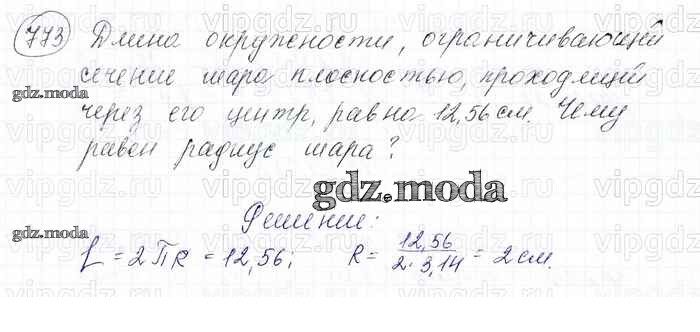 773 Длина окружности, ограничивающей
сечение шара плоскостью, проходящей
gdz.moda
через его центр, равна 12,56 см. Чему
равен радиус шара?
gdz.moda
Решение:
gdz.moda
L = 2ПR = 12,56; R = 12,56 / 2·3,14 = 2 см.
vipgdz.ru